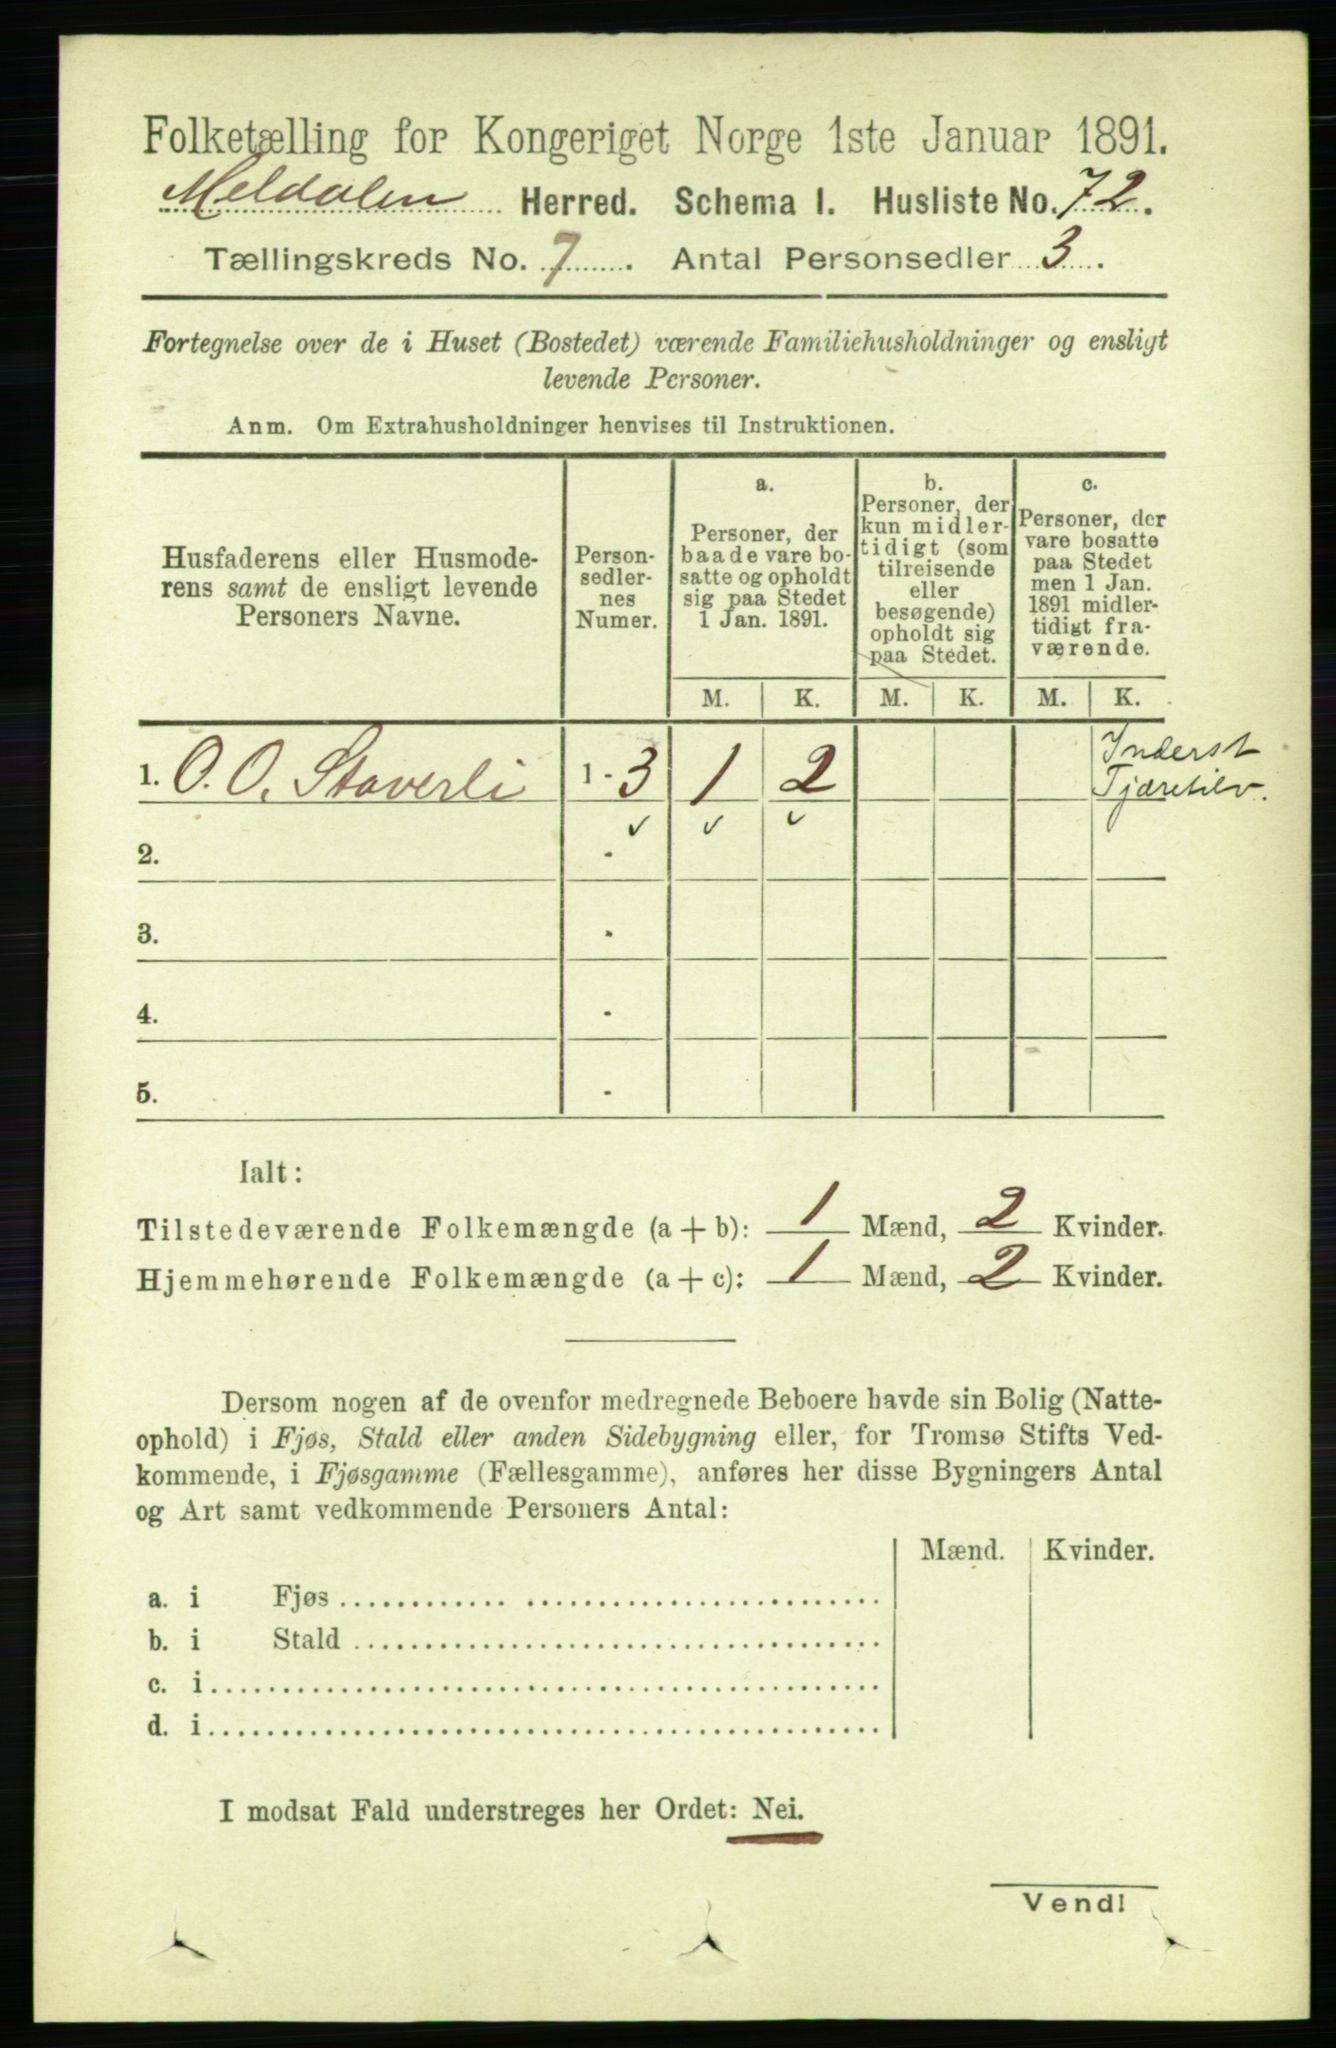 Folketælling for Kongeriget Norge 1ste Januar 1891.
Meldalen Herred. Schema I. Husliste No. 72.
Tællingskreds No. 7. Antal Personsedler 3.
Fortegnelse over de i Huset (Bostedet) værende Familiehusholdninger og ensligt
levende Personer.
Anm. Om Extrahusholdninger henvises til Instruktionen.
Husfaderens eller Husmode-
rens samt de ensligt levende
Personers Navne.
Person-
sedler-
nes
Numer.
a.
Personer, der
baade vare bo-
satte og opholdt
sig paa Stedet
1 Jan. 1891.
b.
Personer, der
kun midler-
tidigt (som
tilreisende
eller
besøgende)
opholdt sig
paa Stedet.
c.
Personer, der
vare bosatte
paa Stedet
men 1 Jan.
1891 midler-
tidigt fra-
værende.
M. K. M. K. M. K.
1. O. O. Staverli 1 - 3 1 2
Inderst
Tjæretilv.
2. -
3. -
4. -
5. -
Ialt:
Tilstedeværende Folkemængde (a + b): 1 Mænd, 2 Kvinder.
Hjemmehørende Folkemængde (a + c): 1 Mænd, 2 Kvinder.
Dersom nogen af de ovenfor medregnede Beboere havde sin Bolig (Natte-
ophold) i Fjøs, Stald eller anden Sidebygning eller, for Tromsø Stifts Ved-
kommende, i Fjøsgamme (Fællesgamme), anføres her disse Bygningers Antal
og Art samt vedkommende Personers Antal:
Mænd. Kvinder.
a. i Fjøs
b. i Stald
c. i
d. i
I modsat Fald understreges her Ordet: Nei.
Vend!